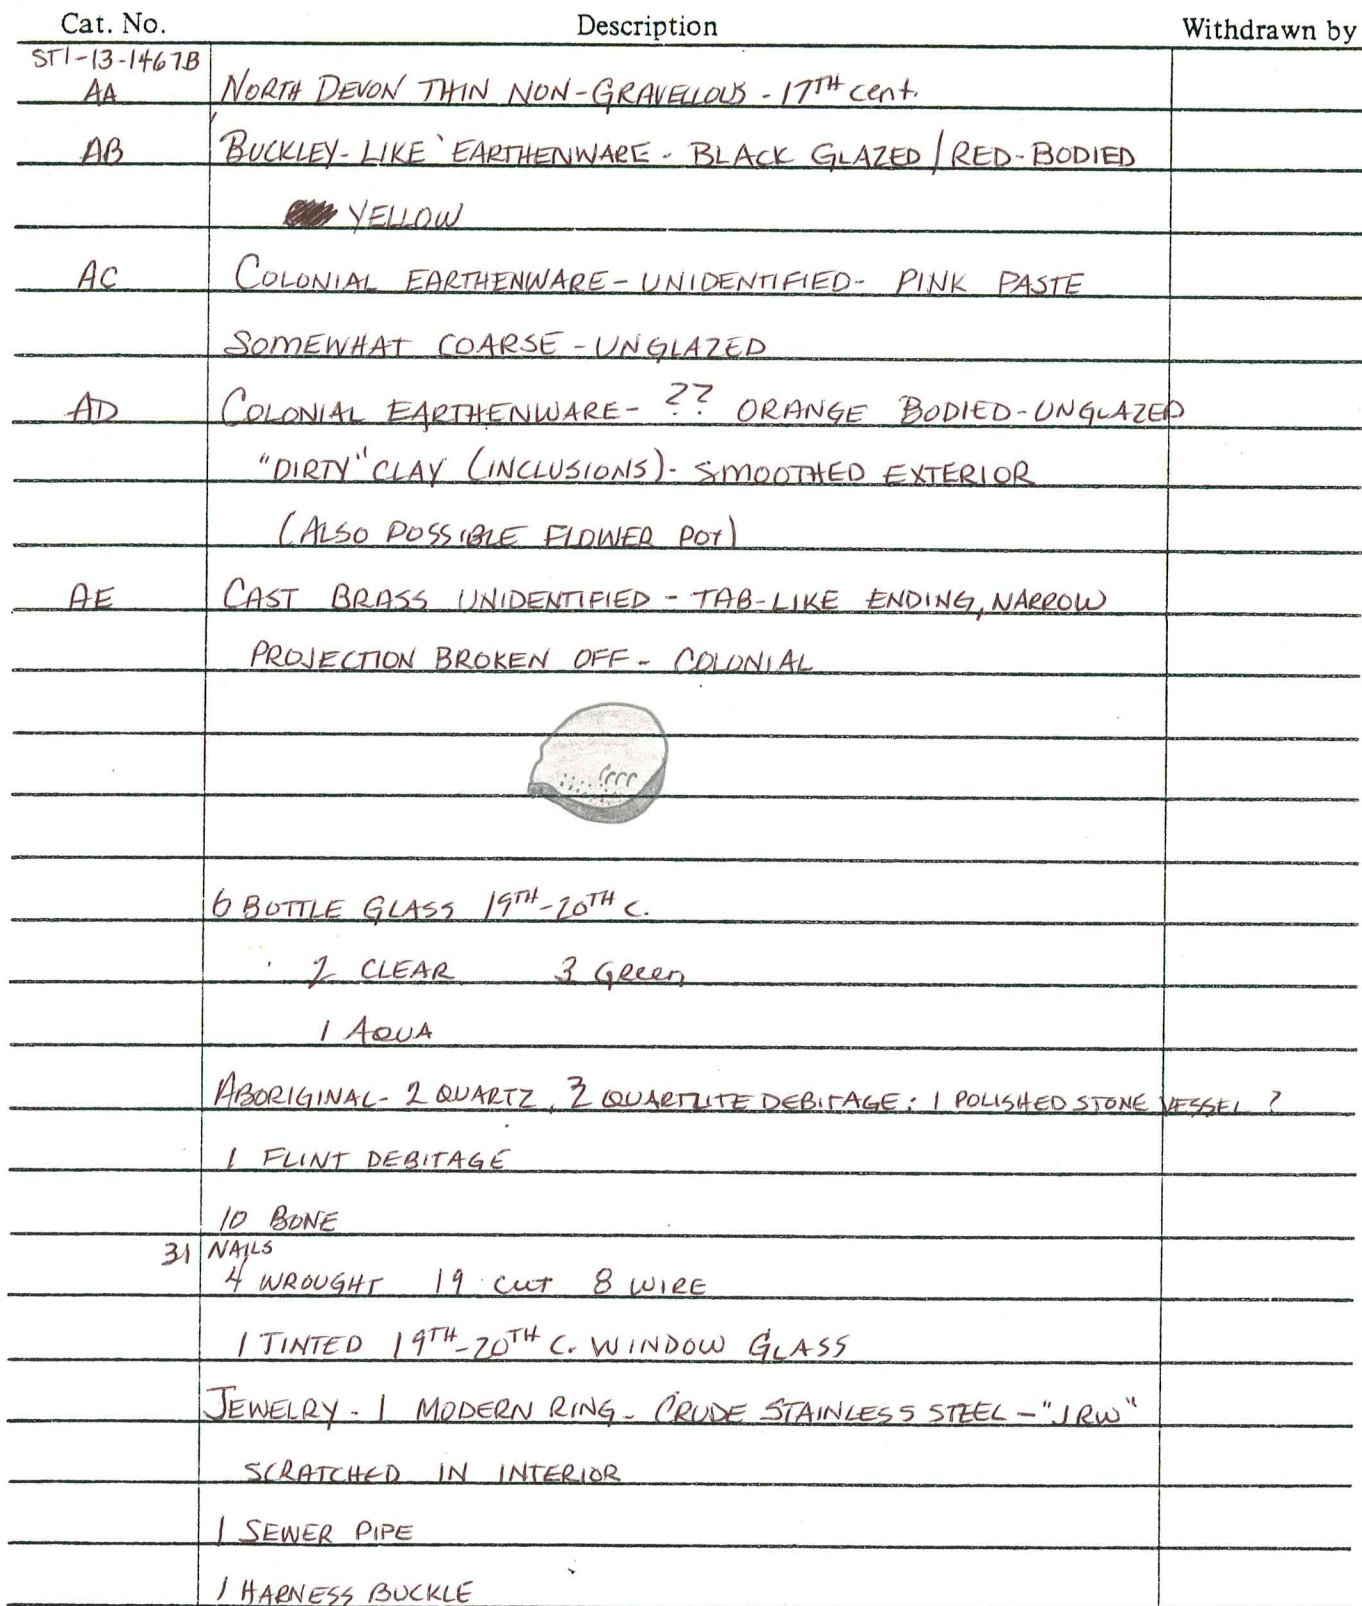 Cat. No. Description Withdrawn by
ST1-13-1467B
AA NORTH DEVON THIN NON-GRAVELLOUS - 17TH cent.
AB 'BUCKLEY-LIKE' EARTHENWARE - BLACK GLAZED / RED-BODIED
YELLOW
AC COLONIAL EARTHENWARE - UNIDENTIFIED - PINK PASTE
SOMEWHAT COARSE - UNGLAZED
AD COLONIAL EARTHENWARE - ?? ORANGE BODIED - UNGLAZED
"DIRTY" CLAY (INCLUSIONS) - SMOOTHED EXTERIOR
(ALSO POSSIBLE FLOWER POT)
AE CAST BRASS UNIDENTIFIED - TAB-LIKE ENDING, NARROW
PROJECTION BROKEN OFF - COLONIAL
6 BOTTLE GLASS 19TH-20TH C.
2 CLEAR 3 Green
1 AQUA
ABORIGINAL - 2 QUARTZ, QUARTZITE DEBITAGE; 1 POLISHED STONE VESSEL ?
1 FLINT DEBITAGE
10 BONE
31 NAILS
4 WROUGHT 19 CUT 8 WIRE
1 TINTED 19TH-20TH C. WINDOW GLASS
JEWELRY - 1 MODERN RING - CRUDE STAINLESS STEEL - "JRW"
SCRATCHED IN INTERIOR
1 SEWER PIPE
1 HARNESS BUCKLE